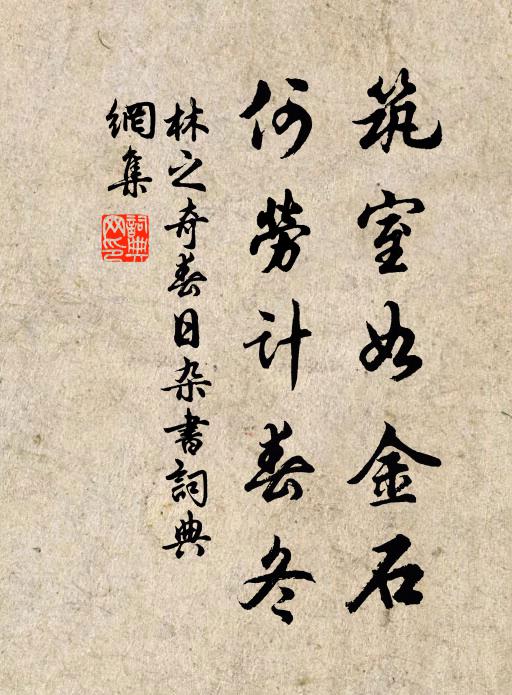 筑室如金石
何勞計春冬
林之奇春日杂書詞典
網集
詞典
网印